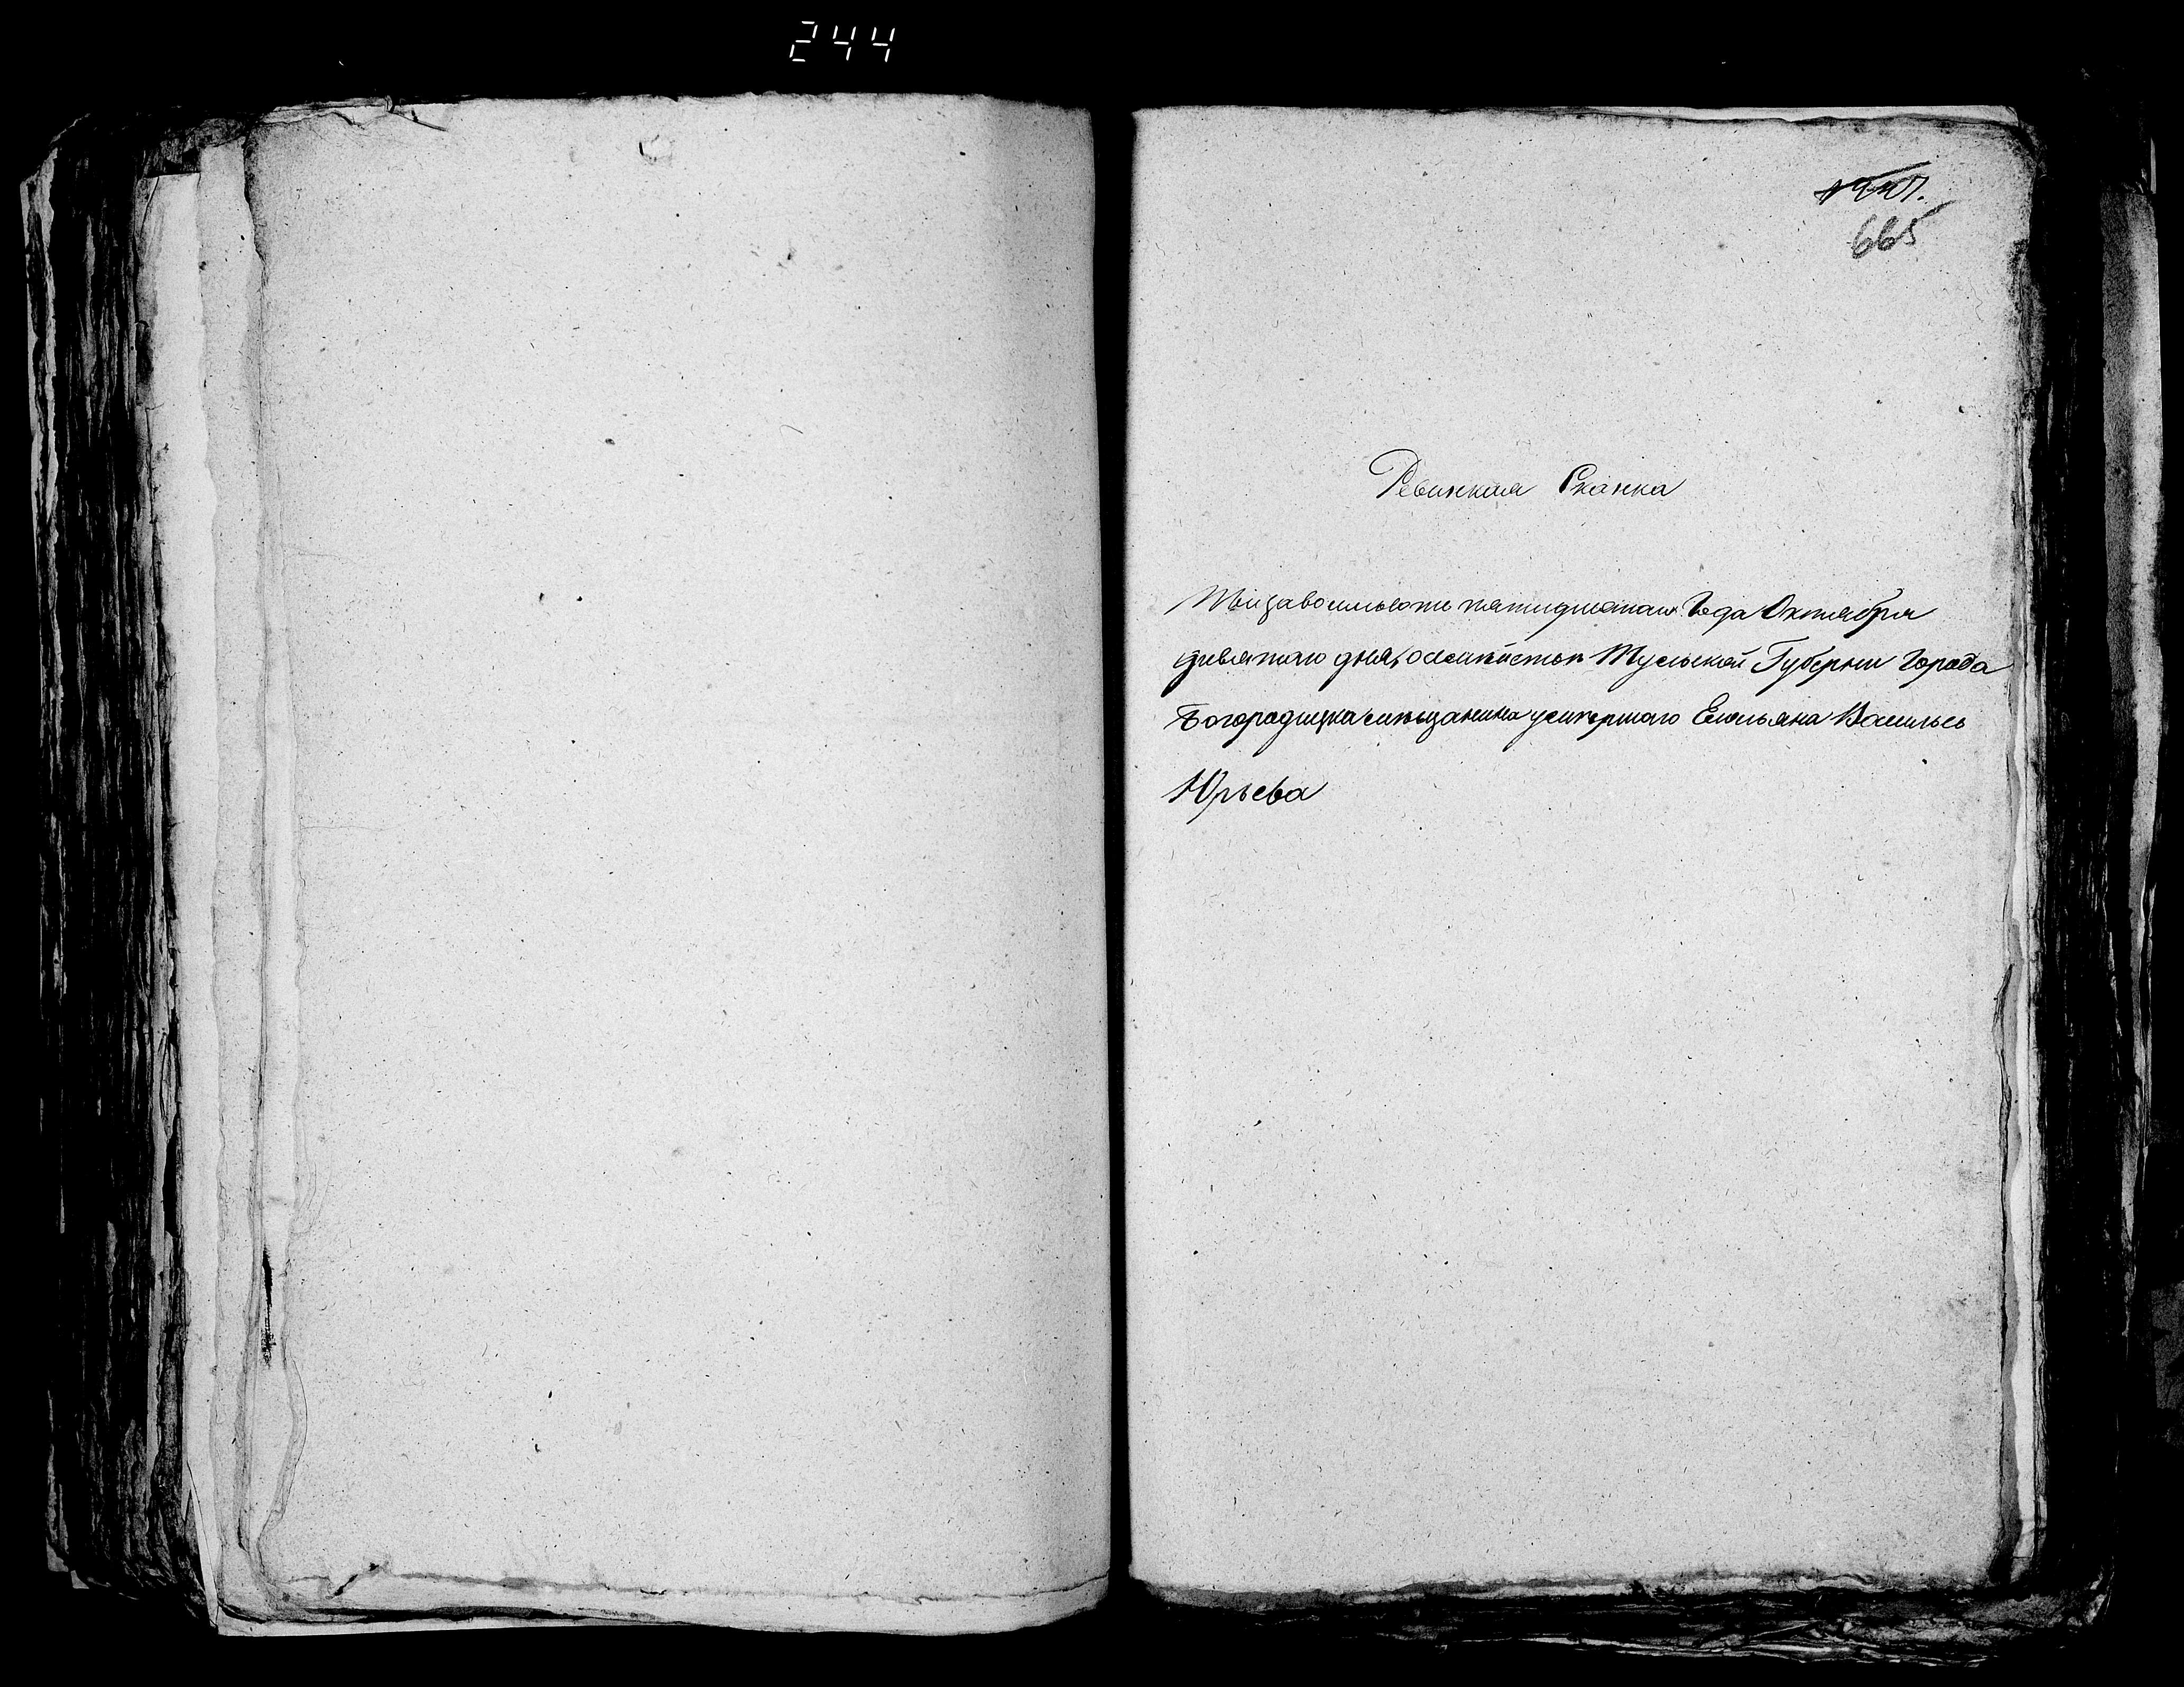 244
665
Ревиская Сказка
Тысяча восимьсотъ пятидесятаго Года Октября
дивятаго дня, Тульской Губернии Города
Богородицка мещанина умершаго Емельяна Васильев
Юрьева